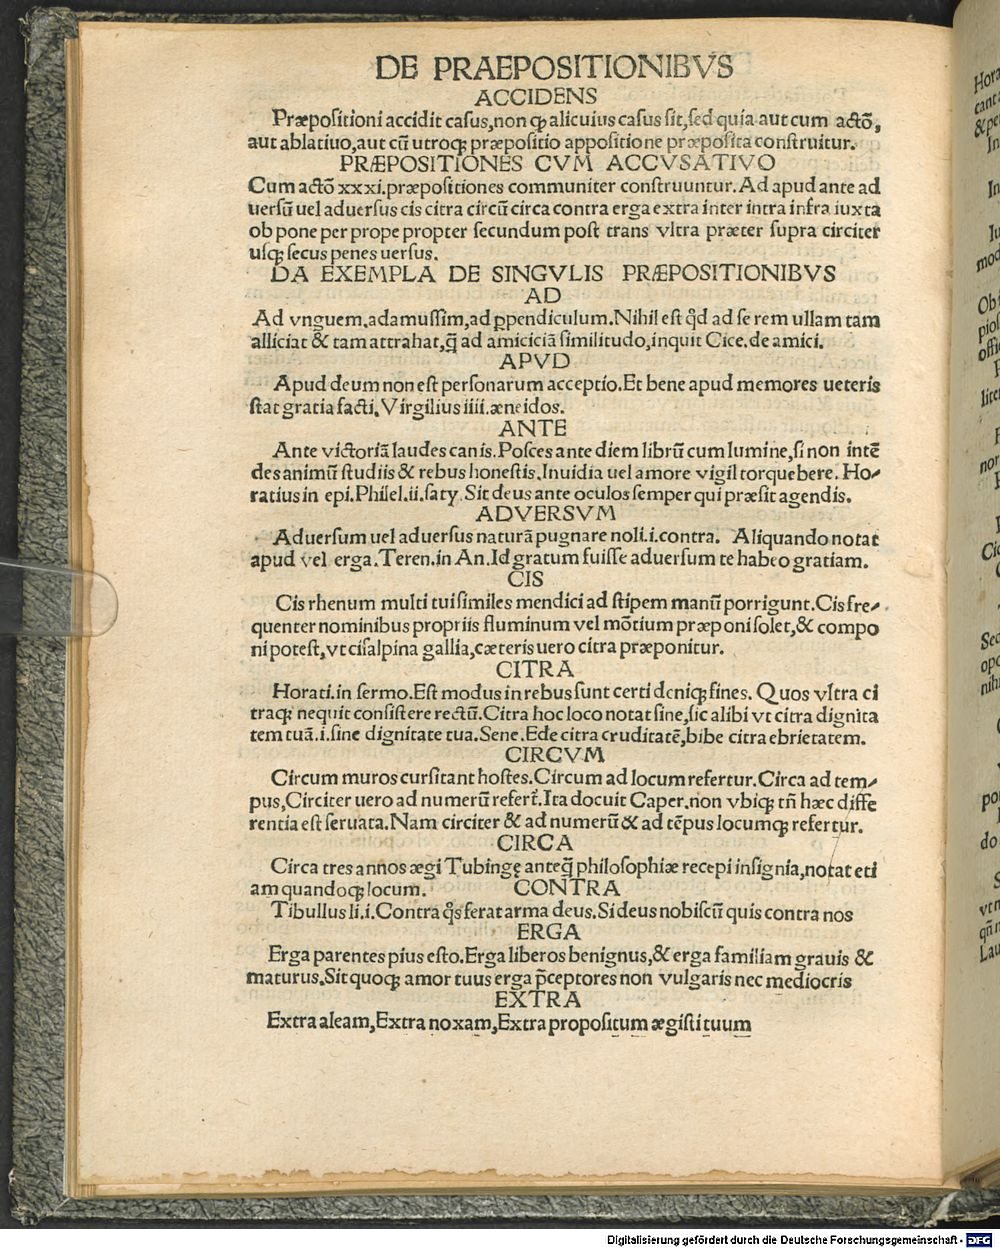 DE PRAEPOSITIONIBVS
ACCIDENS
Præpositioni accidit casus,non ꝙ alicuius casus sit,sed quia aut cum actõ,
aut ablatiuo,aut cũ utroqꝫ præpositio appositione præposita construitur.
PRÆPOSITIONES CVM ACCVSATIVO
Cum actõ xxxi.præpositiones communiter construuntur.Ad apud ante ad
uersũ uel aduersus cis citra circũ circa contra erga extra inter intra infra iuxta
ob pone per prope propter secundum post trans vltra præter supra circiter
usqꝫ secus penes uersus.
DA EXEMPLA DE SINGVLIS PRÆPOSITIONIBVS
AD
Ad vnguem,adamussim,ad ꝑpendiculum.Nihil est qd̓ ad se rem ullam tam
alliciat & tam attrahat,q̃ ad amiciciã similitudo,inquit Cice.de amici.
APVD
Apud deum non est personarum acceptio.Et bene apud memores ueteris
stat gratia facti.Virgilius iiii.æneidos.
ANTE
Ante victoriã laudes canis.Posces ante diem librũ cum lumine,si non intẽ
des animũ studiis & rebus honestis.Inuidia uel amore vigil torquebere.Ho⸗
ratius in epi.Philel.ii.saty.Sit deus ante oculos semper qui præsit agendis.
ADVERSVM
Aduersum uel aduersus naturã pugnare noli.i.contra. Aliquando notat
apud vel erga.Teren.in An.Id gratum fuisse aduersum te habeo gratiam.
CIS
Cis rhenum multi tui similes mendici ad stipem manũ porrigunt.Cis fre⸗
quenter nominibus propriis fluminum vel mõtium præponi solet,& compo
ni potest,vt cisalpina gallia,cæteris uero citra præponitur.
CITRA
Horati.in sermo.Est modus in rebus sunt certi deniqꝫ fines. Quos vltra ci
traqꝫ nequit consistere rectũ.Citra hoc loco notat sine,sic alibi vt citra dignita
tem tuã.i.sine dignitate tua.Sene.Ede citra cruditatẽ,bibe citra ebrietatem.
CIRCVM
Circum muros cursitant hostes.Circum ad locum refertur.Circa ad tem⸗
pus,Circiter uero ad numerũ refert̃.Ita docuit Caper.non vbiqꝫ tñ hæc diffe
rentia est seruata.Nam circiter & ad numerũ & ad tẽpus locumqꝫ refertur.
CIRCA
Circa tres annos ægi Tubingę anteq̃ philosophiæ recepi insignia,notat eti
am quandoqꝫ locum. CONTRA
Tibullus li.i.Contra q̓s ferat arma deus.Si deus nobiscũ quis contra nos
ERGA
Erga parentes pius esto.Erga liberos benignus,& erga familiam grauis &
maturus.Sit quoqꝫ amor tuus erga p̃ceptores non vulgaris nec mediocris
EXTRA
Extra aleam,Extra noxam,Extra propositum ægisti tuum
Hora
cant
In
In
Iu
mod
Ob
pios
offi
lite
nor
Cic
Sec
opo
nihi
po
do
vt n
Lau
Digitalisierung gefördert durch die Deutsche Forschungsgemeinschaft - DFG